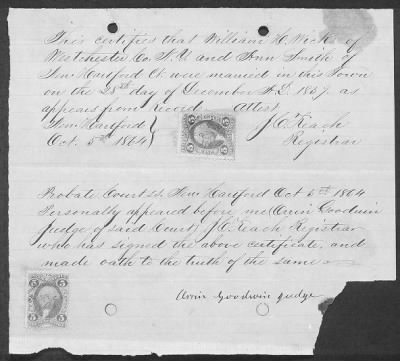 This certifies that William H. Wicks of
Westchester Co. N.Y. and Ann Smith of
New Hartford Ct. were married in this Town
on the 28th day of December A.D. 1857. as
appears from record. Attest
New Hartford } J C Keach
Oct. 5th 1864 } Registrar
5 5
Probate Court ss. New Hartford Oct 5th 1864
Personally appeared before me (Orrin Goodwin
judge of said Court) J C Keach Registrar
who has signed the above certificate, and
made oath to the truth of the same
Orrin Goodwin judge
5 5